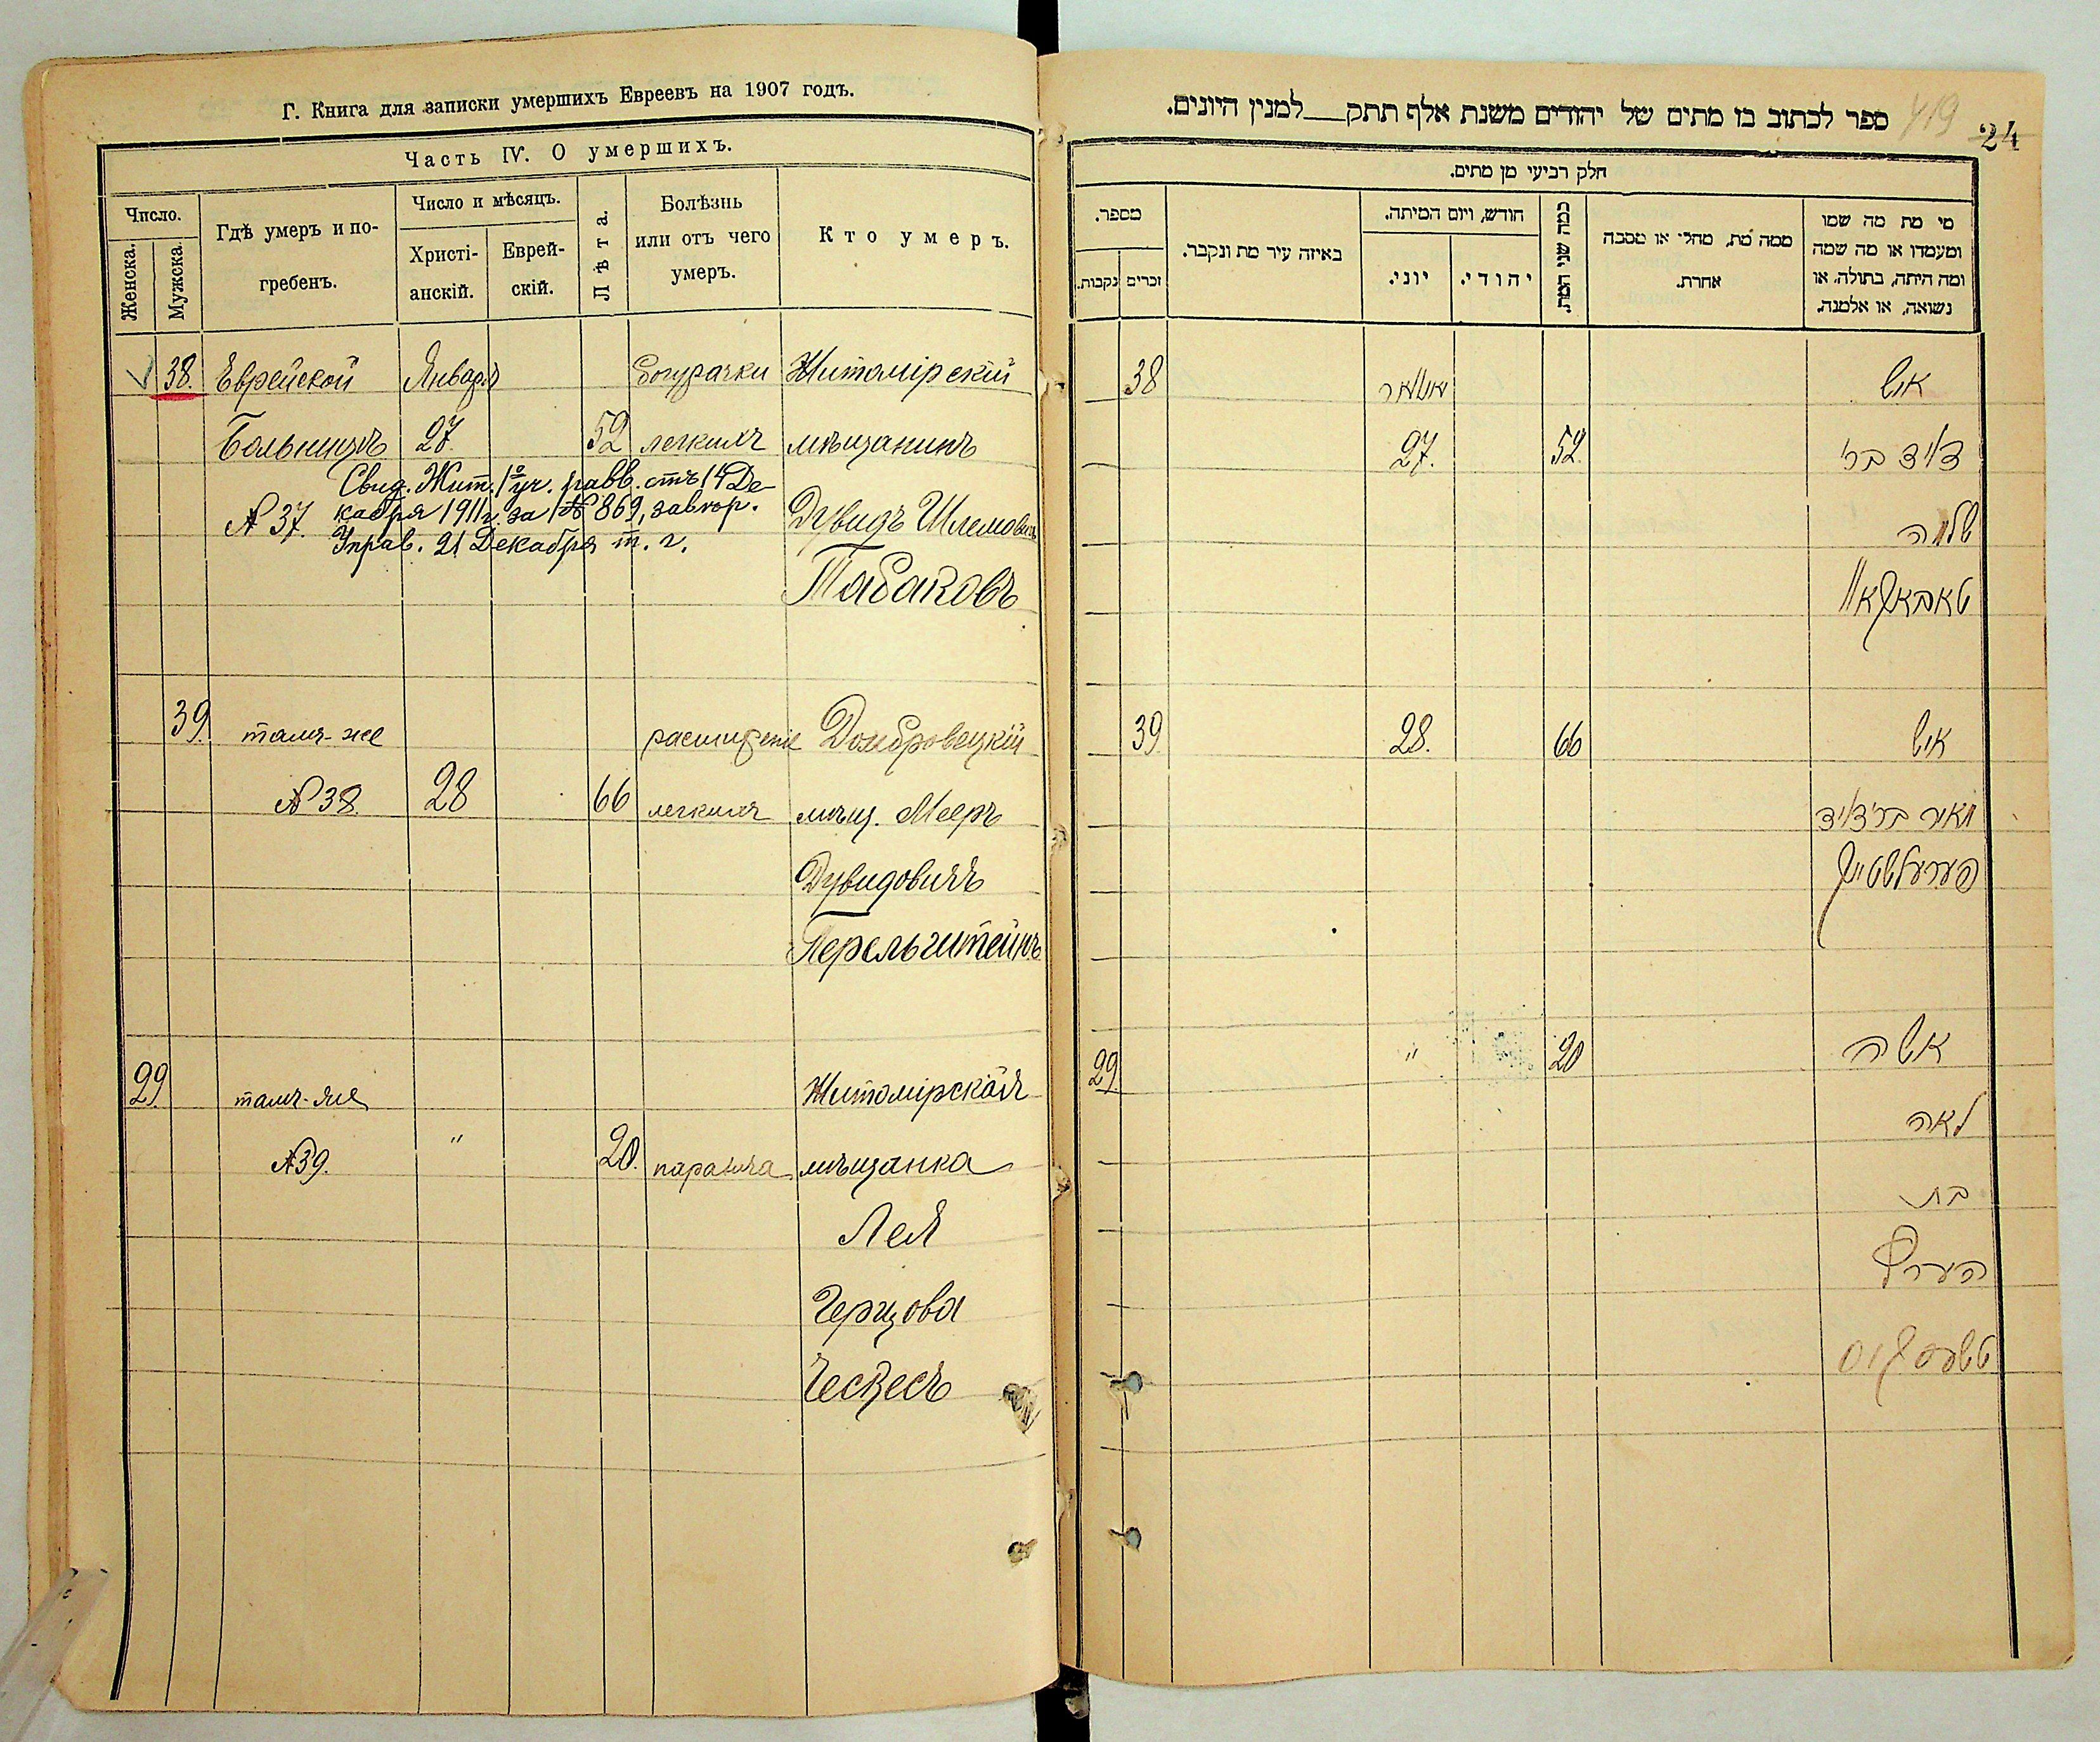 Г. Книга для записки умершихъ Евреевъ на 1907 годъ.
Часть IV. О умершихъ.
Число.
Женска.
Мужска.
Гдѣ умеръ и по-
гребенъ.
Число и мѣсяцъ.
Христі-
анскій.
Еврей-
скій.
Лѣта.
Болѣзнь
или отъ чего
умеръ.
Кто умеръ.
38. Еврейской Января бугурачки Житомірскій
Больницѣ 27. 52 легкихъ мѣщанинъ
Свид. Жит. 1го уч. равв. отъ 14 Де-
кабря 1911 г. за № 869, завѣр.
Управ. 21 Декабря т. г.
№ 37. Дувидъ Шлемовичъ
Табаковъ
39. тамъ-же расширеніе Домбровецкій
№ 38. 28 66 легкихъ мѣщ. Мееръ
Дувидовичъ
Перельштейнъ
29 тамъ-же Житомірская
№ 39. " 20. паралича мѣщанка
Лея
Герцова
Ческесъ
419
24
ספר לכתוב בו מתים של יהודים משנת אלף תתק__למנין היונים.
חלק רביעי מן מתים.
מספר.
נקבות.
זכרים
באיזה עיר מת ונקבר.
חודש, ויום המיתה.
יוני.
יהודי.
כמה שני המת.
ממה מת, מחלי או מסבה
אחרת.
מי מת מה שמו
ומעמדו או מה שמה
ומה היתה, בתולה, או
נשואה, או אלמנה.
38 יאנואר איש
27. 52. דוד בר'
שלמה
טאבאקאוו
39 28. 66 איש
מאיר בר' דוד
פערעלשטיין
29. " 20 אשה
לאה
בת
הערץ
טשעסקיס